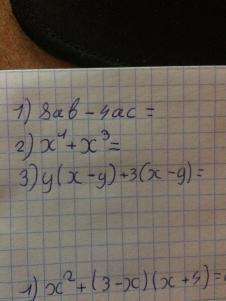 1) 8ab - 4ac =
2) x⁴ + x³ =
3) y(x-y)+3(x-y) =
1) x² + (3-x)(x+5) =